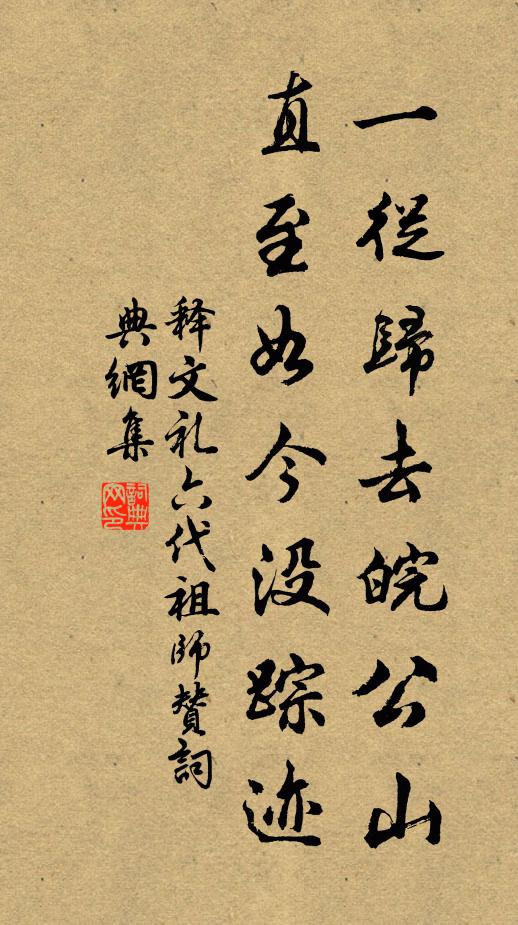 一從歸去皖公山
直至如今没踪迹
释文礼六代祖師贊詞
典網集
詞典網印